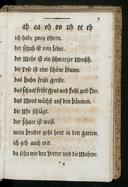 ah aa oh oo uh ee eh
ich habe zwey ohren.
der schuh ist von leder.
der Mohr ist ein schwarzer Mensch.
die rose ist eine schöne blume.
das huhn frißt gerste.
das schaaf frißt gras und
das Moos wächst auf den bäumen.
die Uhr schlägt.
der schnee ist weiß.
mein bruder geht heut in den garten.
ich geh auch mit.
da sehn wir den Vetter und die Muhme.